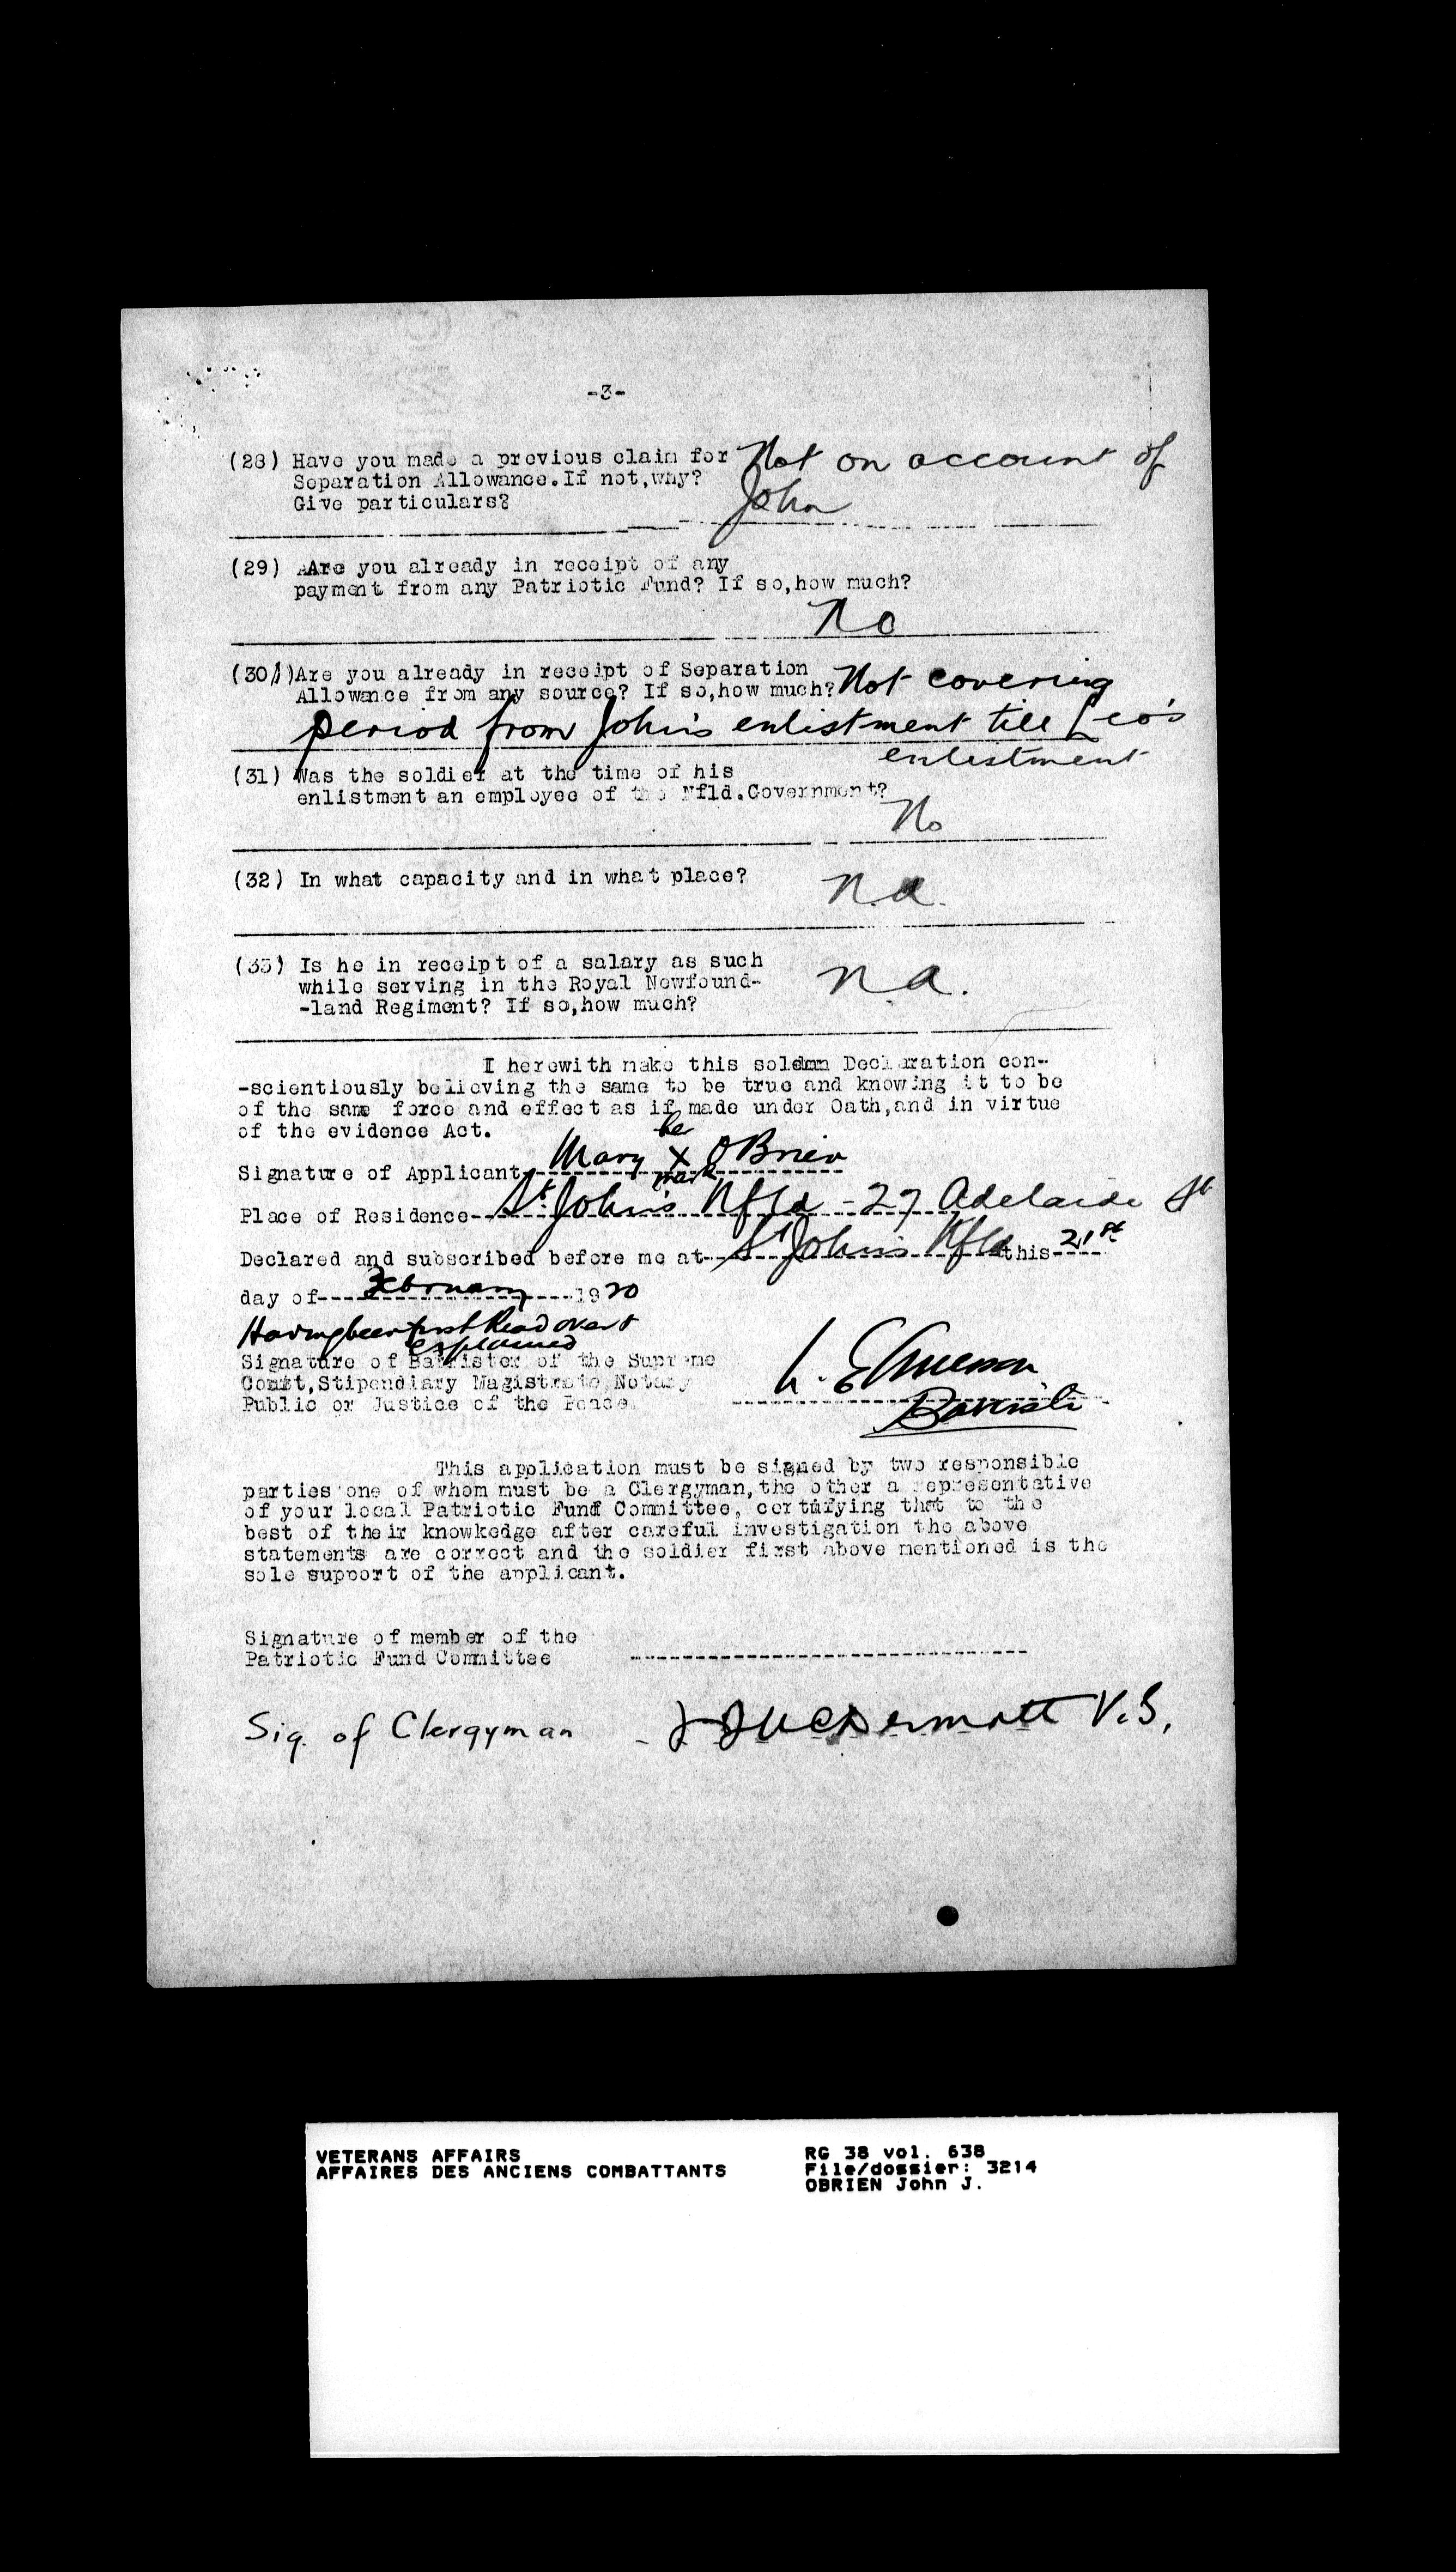 -3-
(28) Have you made a previous claim for Not on account of
Separation Allowance.If not,why?
Give particulars? John
(29) Are you already in receipt of any
payment from any Patriotic Fund? If so,how much?
No
(30) Are you already in receipt of Separation
Allowance from any source? If so,how much? Not covering
period from John's enlistment till Leo's
enlistment
(31) Was the soldier at the time of his
enlistment an employee of the Nfld.Government?
No
(32) In what capacity and in what place? n.a.
(33) Is he in receipt of a salary as such
while serving in the Royal Newfound-
-land Regiment? If so,how much? n.a.
I herewith make this solemn Declaration con-
-scientiously believing the same to be true and knowing it to be
of the same force and effect as if made under Oath,and in virtue
of the evidence Act.
her
Signature of Applicant Mary X OBrien
mark
Place of Residence St. John's Nfld - 27 Adelaide St
Declared and subscribed before me at St John's Nfld this 21st
day of February 1920
Having been first Read over &
explained
Signature of Barrister of the Supreme
Court,Stipendiary Magistrate,Notary
Public or Justice of the Peace.
Barrister
This application must be signed by two responsible
parties one of whom must be a Clergyman,the other a representative
of your local Patriotic Fund Committee, certifying that to the
best of their knowkedge after careful investigation the above
statements are correct and the soldier first above mentioned is the
sole support of the applicant.
Signature of member of the
Patriotic Fund Committee
Sig. of Clergyman - McDermott V.G.
VETERANS AFFAIRS
AFFAIRES DES ANCIENS COMBATTANTS
RG 38 vol. 638
File/dossier: 3214
OBRIEN John J.